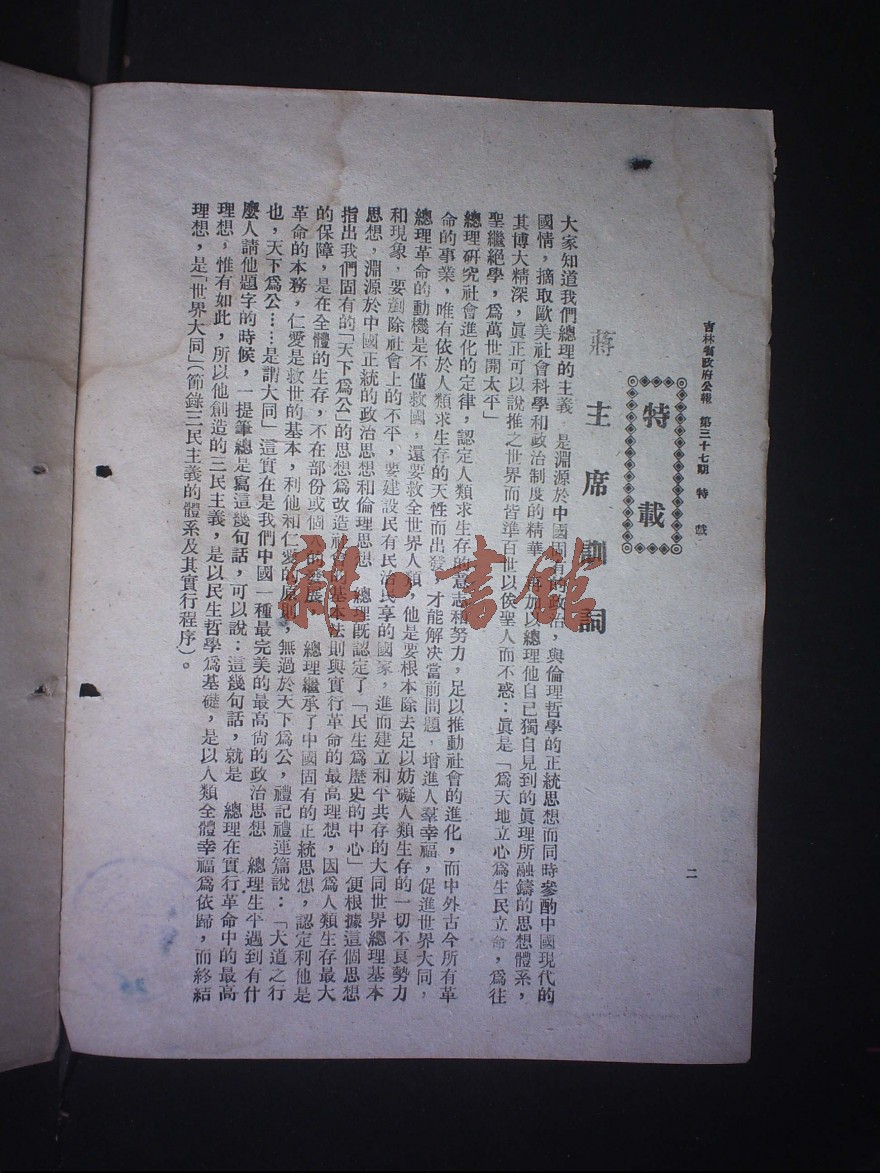 吉林省政府公報　第三十七期　特載
二
特載
蔣主席訓詞
大家知道我們總理的主義，是淵源於中國固有的政治，與倫理哲學的正統思想而同時參酌中國現代的
國情，摘取歐美社會科學和政治制度的精華，再加以總理他自己獨自見到的眞理所融鑄的思想體系，
其博大精深，眞正可以說推之世界而皆準百世以俟聖人而不惑：眞是「爲天地立心爲生民立命，爲往
聖繼絕學，爲萬世開太平」
總理研究社會進化的定律，認定人類求生存的意志和努力，足以推動社會的進化，而中外古今所有革
命的事業，唯有依於人類求生存的天性而出發，才能解決當前問題，增進人羣幸福，促進世界大同，
總理革命的動機是不僅救國，還要救全世界人類，他是要根本除去足以妨礙人類生存的一切不良勢力
和現象，要剷除社會上的不平，要建設民有民治民享的國家，進而建立和平共存的大同世界總理基本
思想，淵源於中國正統的政治思想和倫理思想　總理既認定了「民生爲歷史的中心」便根據這個思想
指出我們固有的「天下爲公」的思想爲改造社會的基本法則與實行革命的最高理想，因爲人類生存最大
的保障，是在全體的生存，不在部份或個人的發展，　總理繼承了中國固有的正統思想，認定利他是
革命的本務，仁愛是救世的基本，利他和仁愛的原則，無過於天下爲公，禮記禮運篇說：「大道之行
也，天下爲公……是謂大同」這實在是我們中國一種最完美的最高尙的政治思想　總理生平遇到有什
麼人請他題字的時候，一提筆總是寫這幾句話，可以說：這幾句話，就是　總理在實行革命中的最高
理想，惟有如此，所以他創造的三民主義，是以民生哲學爲基礎，是以人類全體幸福爲依歸，而終結
理想，是「世界大同」（節錄三民主義的體系及其實行程序）。
雜·書館